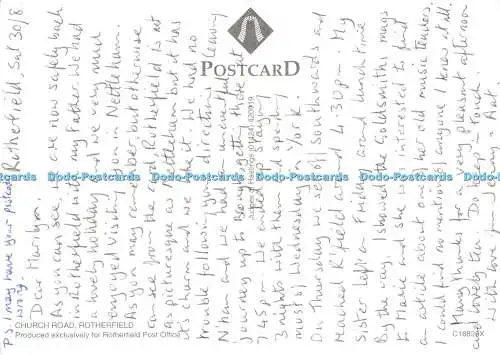 POSTCARD
Rotherfield, Sat 30/8
Dear Marilyn,
As you can see, we are now safely back
in Rotherfield with my Father. We had
a lovely holiday and we very much
enjoyed visiting you in Nettleham.
As you may remember, but otherwise
can see from the card, Rotherfield is not
as picturesque as Nettleham but it has
its charm and we like it. We had no
trouble following your directions leaving
N'ham and we had an uneventful
journey up to getting there at
7.45pm. We ended up staying
3 nights with them and spent
most of Wednesday in York.
On Thursday we set off Southwards and
reached R'field around 4.30pm. My
sister left for Findon around lunchtime.
By the way, I showed the Goldsmiths mags
to Marie and she was interested to find
an article about our old music teacher.
I could find no mention of anyone I knew at all.
Many thanks for a very pleasant afternoon
and lovely tea. Do keep in touch.
With love from
P.S. I may have your postcard
wrong.
Hastings 01424 820919
CHURCH ROAD, ROTHERFIELD
Produced exclusively for Rotherfield Post Office
C16828X
D-Postcards D-Postcards D-Postcards D-Postcards D-Postcards D-Postcards